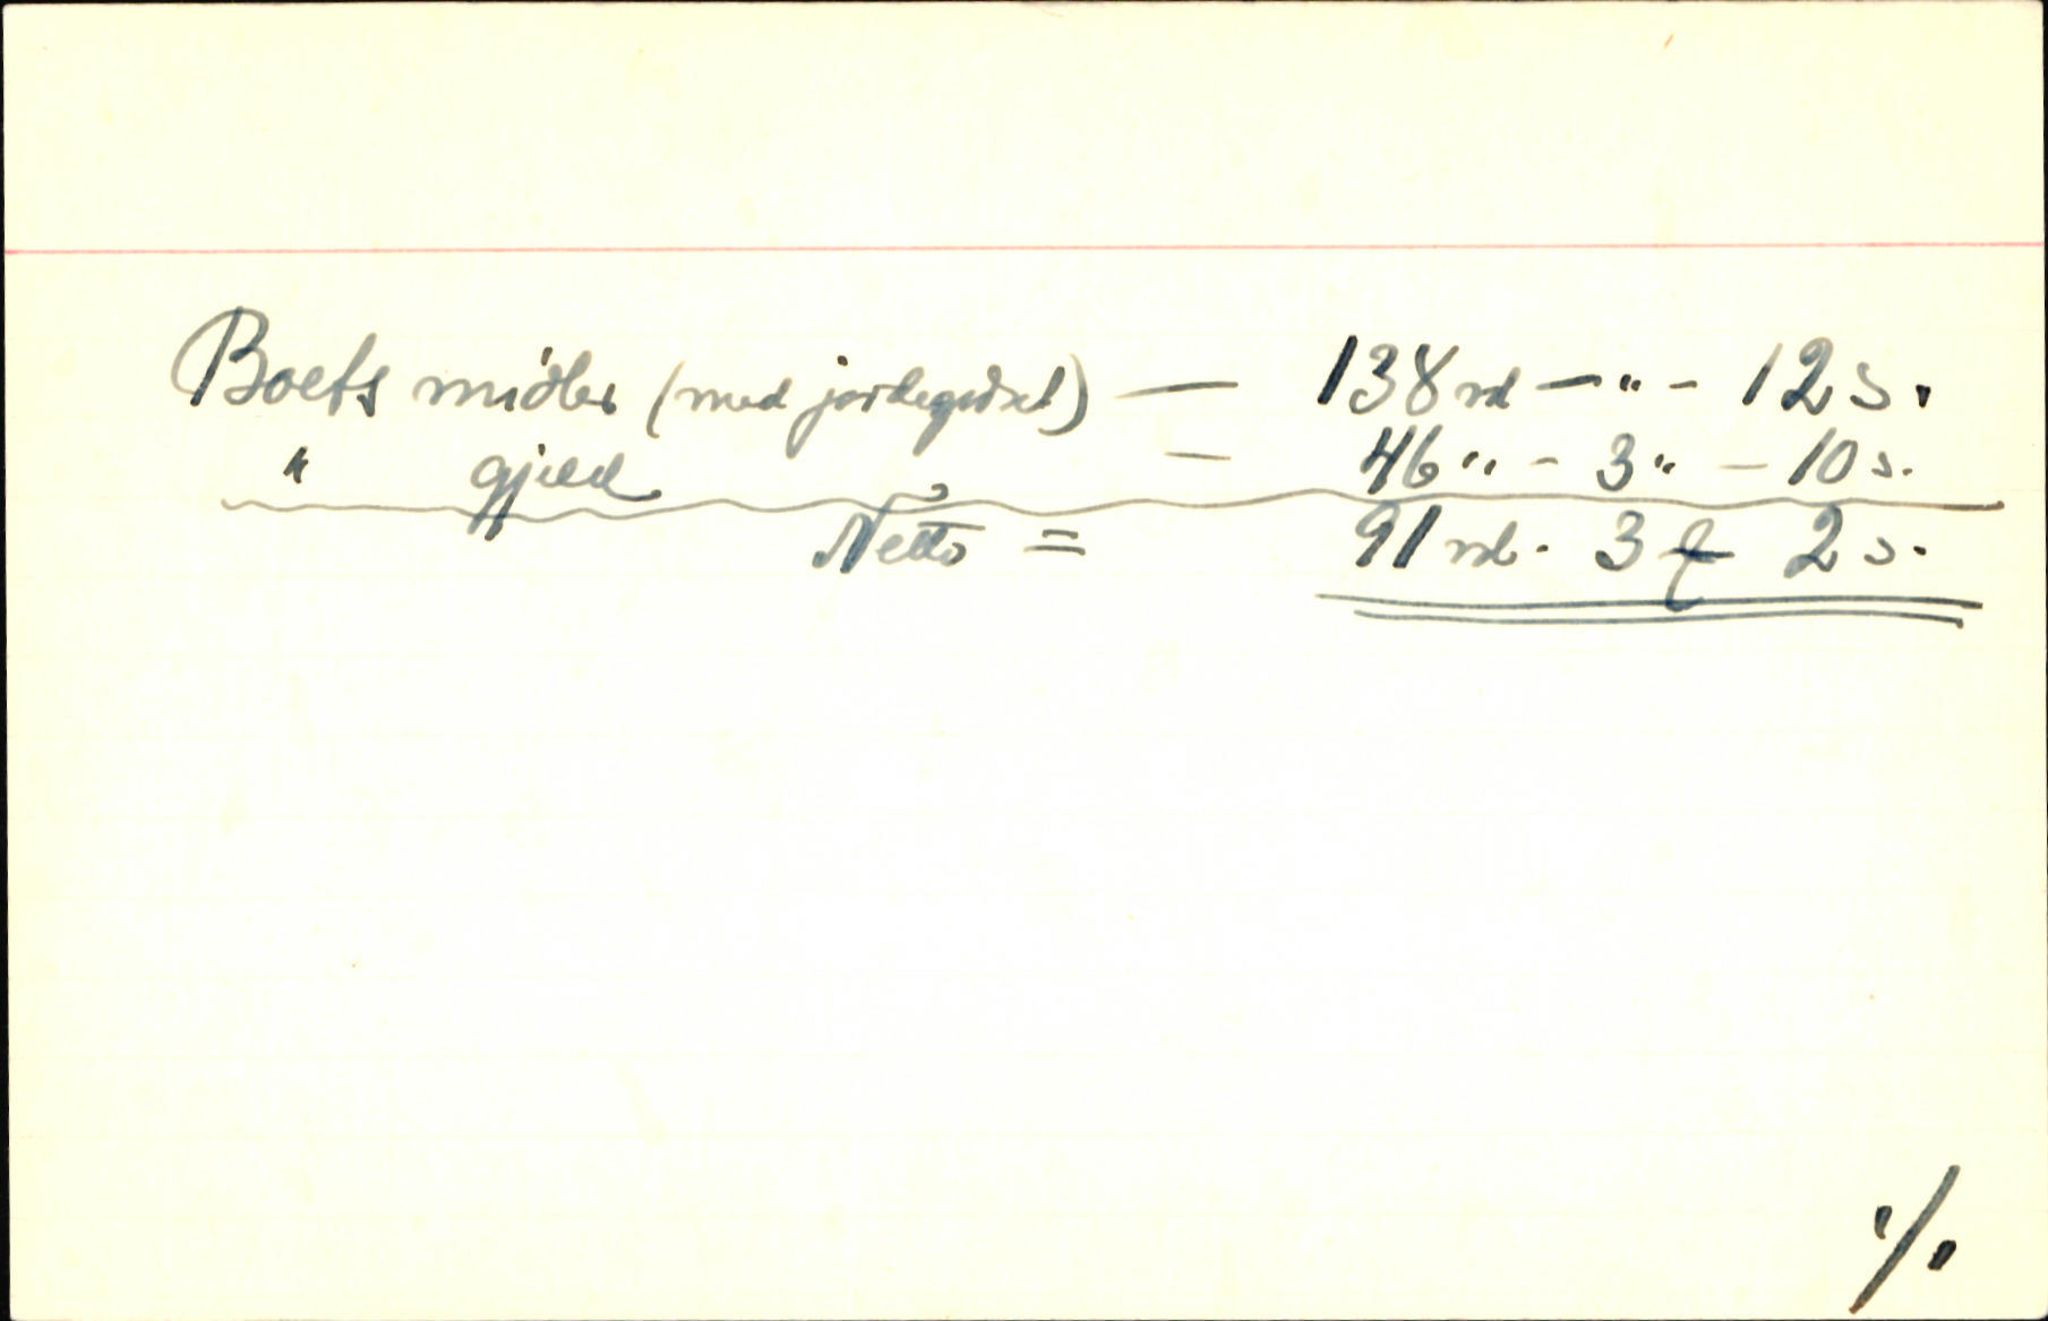 Boets midler (med jordegodset) — 138 rd — " - 12 s.
" gjeld — 46 " - 3 " - 10 s.
Netto = 91 rd. 3 f 2 s.
./.